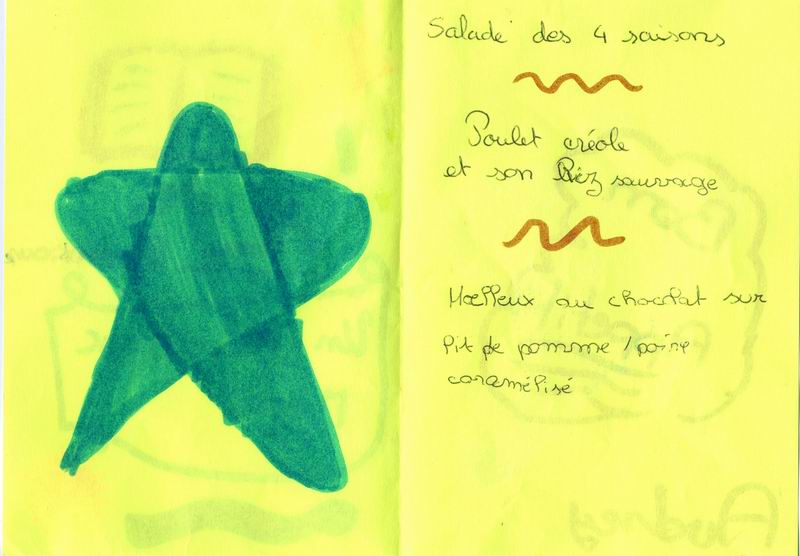 Salade des 4 saisons
Poulet créole
et son Riz sauvage
Moelleux au chocolat sur
lit de pomme / poire
caramélisé